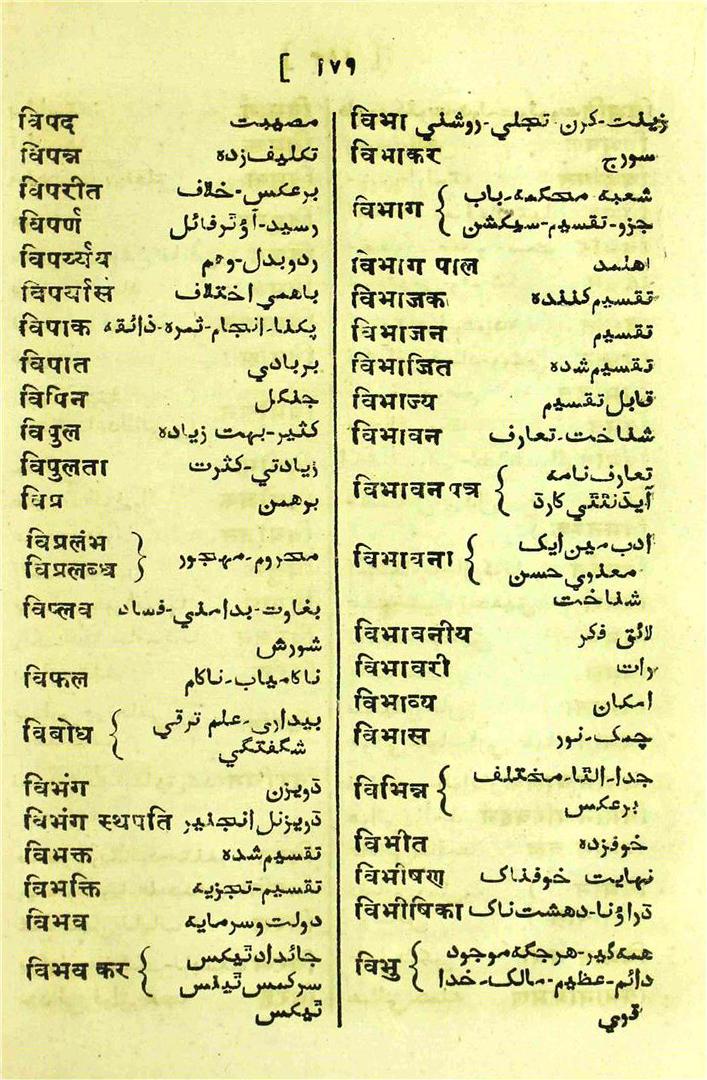 [ ۱۷۹
विपद مصیبت
विपन्न تکلیف‌زدہ
विपरीत برعکس-خلاف
विपर्ण رسید-آؤٹرفائل
विपर्य्यय ردوبدل-وہم
विपर्यास باہمی اختلاف
विपाक پکنا-انجام-ثمرہ-ذائقہ
विपात بربادی
विपिन جنگل
विपुल کثیر-بہت زیادہ
विपुलता زیادتی-کثرت
विप्र برہمن
विप्रलंभ
विप्रलब्ध } محروم-مہجور
विप्लव بغاوت-بدامنی-فساد
شورش
विफल ناکامیاب-ناکام
विबोध { بیداری-علم ترقی
شگفتگی
विभंग ڈویژن
विभंग स्थपति ڈویژنل انجنیر
विभक्त تقسیم شدہ
विभक्ति تقسیم-تجزیہ
विभव دولت و سرمایہ
विभव कर { جائداد ٹیکس
سرکمس ٹینس
ٹیکس
विभा زینت-کرن-تجلی-روشنی
विभाकर سورج
विभाग { شعبہ محکمہ-باب
جزو-تقسیم-سیکشن
विभाग पाल اہلمد
विभाजक تقسیم کنندہ
विभाजन تقسیم
विभाजित تقسیم شدہ
विभाज्य قابل تقسیم
विभावन شناخت-تعارف
विभावन पत्र { تعارف نامہ
آیڈنٹٹی کارڈ
विभावना { ادب میں ایک
معنوی حسن
شناخت
विभावनीय لائق فکر
विभावरी رات
विभाव्य امکان
विभास چمک-نور
विभिन्न { جدا-الٹا-مختلف
برعکس
विभीत خوفزدہ
विभीषण نہایت خوفناک
विभीषिका ڈراؤنا-دہشت ناک
विभु { ہمہ گیر-ہرجگہ موجود
دائم-عظیم-مالک-خدا
قوی